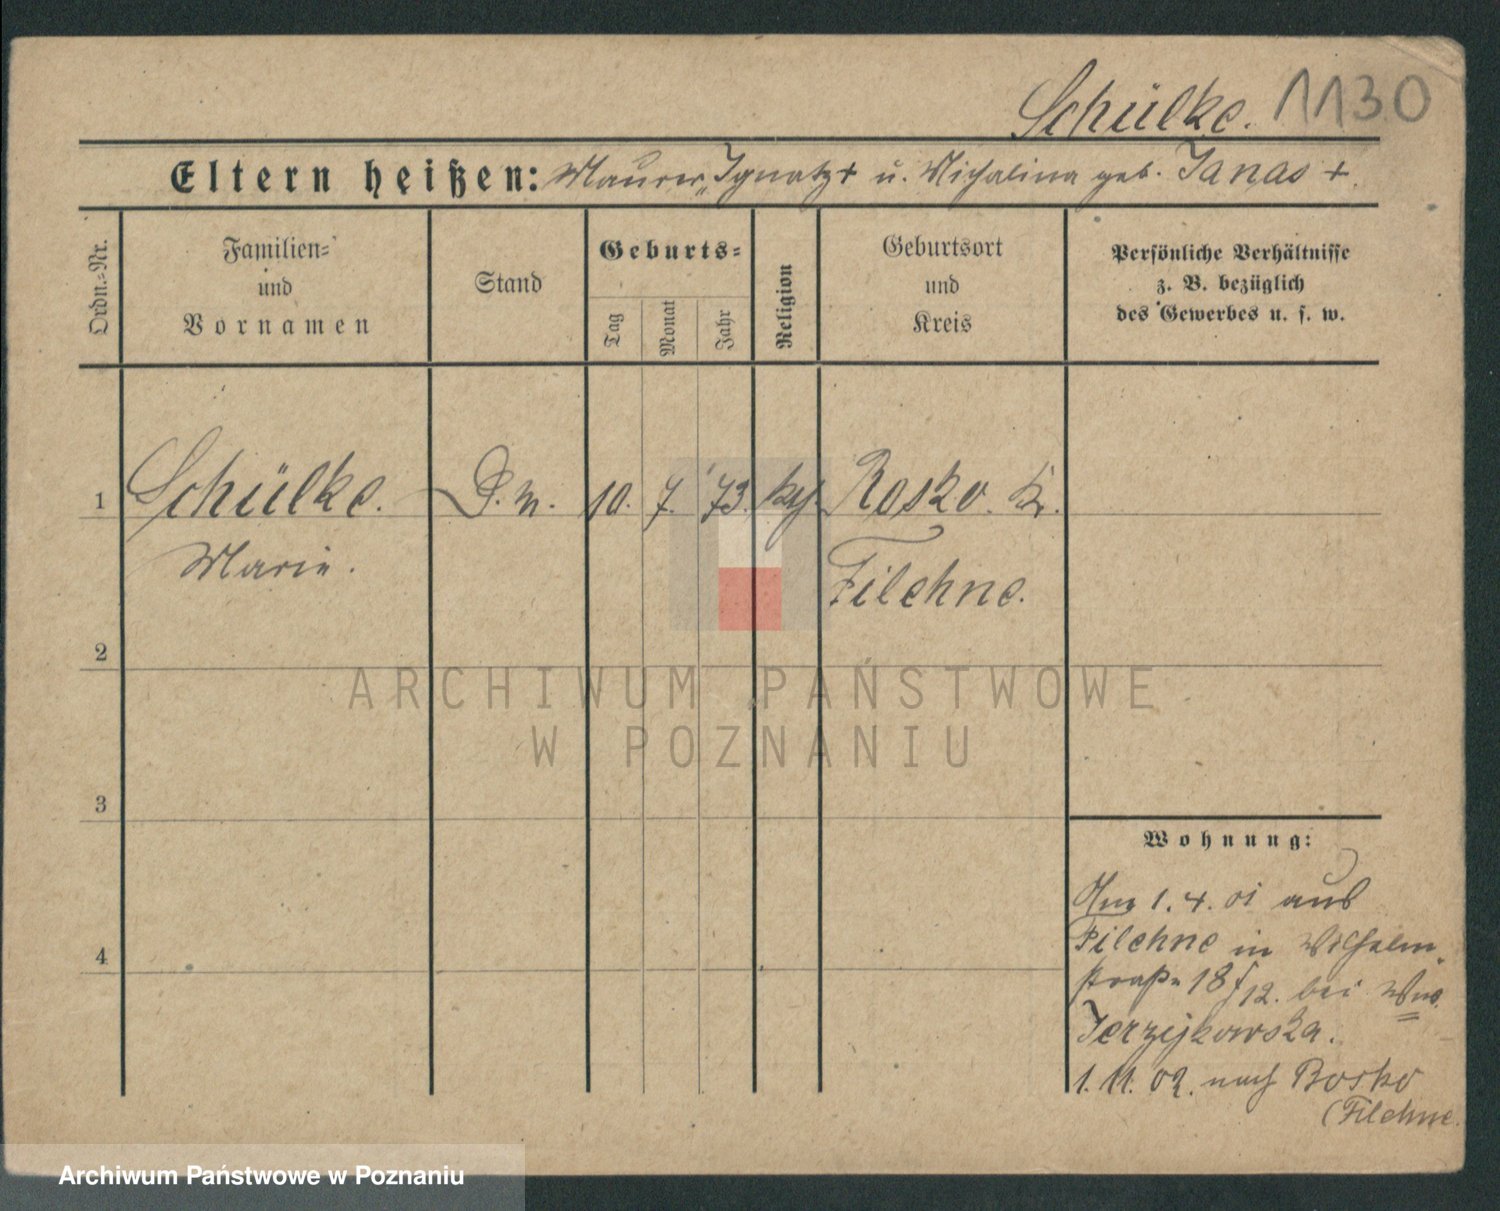 Schülke. 1130
Eltern heißen: Maurer Ignatz + u. Michalina geb. Janas +
Ordn.=Nr.
Familien=
und
Vornamen
Stand
Geburts=
Tag
Monat
Jahr
Religion
Geburtsort
und
Kreis
Persönliche Verhältnisse
z. B. bezüglich
des Gewerbes u. s. w.
1 Schülke. D.m. 10. 7. '73. kth. Rosko. Kr.
Marie. Filehne.
2
3
4
ARCHIWUM PAŃSTWOWE
W POZNANIU
Wohnung:
1.4.01 aus
Filehne in Wilhelm
straße 18 I/12. bei Wwe.
Jerzejkowska.
1.11.02. nach Rosko
(Filehne.
Archiwum Państwowe w Poznaniu